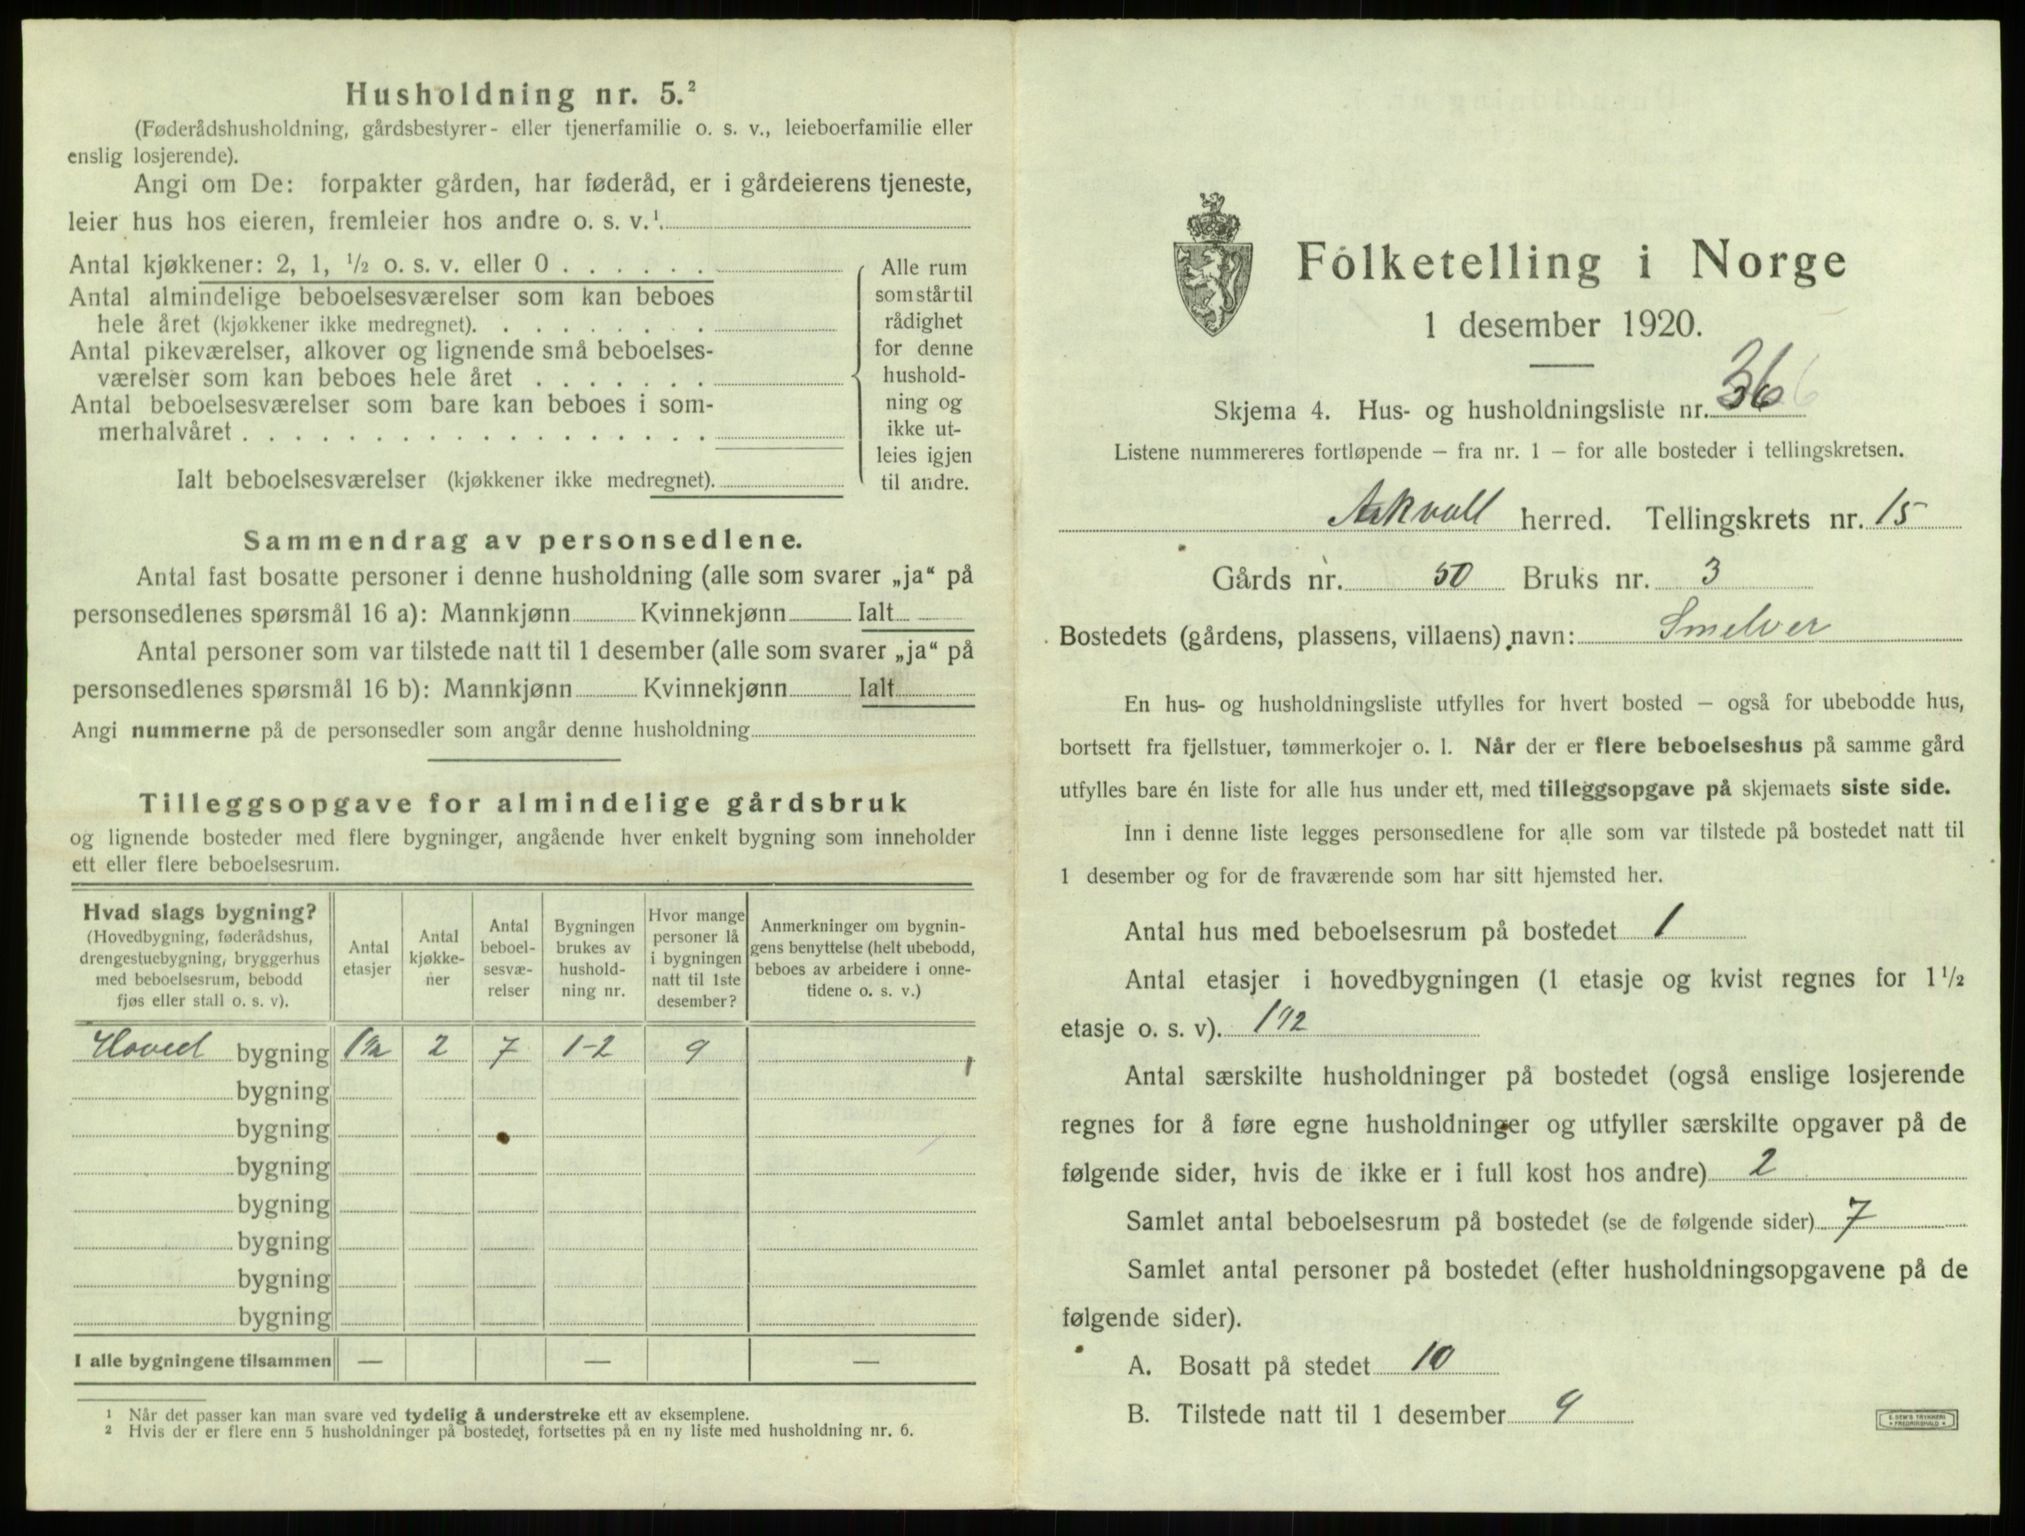 Husholdning nr. 5.²
(Føderådshusholdning, gårdsbestyrer- eller tjenerfamilie o. s. v., leieboerfamilie eller
enslig losjerende).
Angi om De: forpakter gården, har føderåd, er i gårdeierens tjeneste,
leier hus hos eieren, fremleier hos andre o. s. v.¹.
Antal kjøkkener: 2, 1, ½ o. s. v. eller 0 . . . . . .
Antal almindelige beboelsesværelser som kan beboes
hele året (kjøkkener ikke medregnet). . . . . . . . .
Antal pikeværelser, alkover og lignende små beboelses-
værelser som kan beboes hele året . . . . . . .
Antal beboelsesværelser som bare kan beboes i som-
merhalvåret . . . . . . . . . . . . . . . . . .
Ialt beboelsesværelser (kjøkkener ikke medregnet).
Alle rum
som står til
rådighet
for denne
hushold-
ning og
ikke ut-
leies igjen
til andre.
Sammendrag av personsedlene.
Antal fast bosatte personer i denne husholdning (alle som svarer „ja“ på
personsedlenes spørsmål 16 a): Mannkjønn Kvinnekjønn Ialt
Antal personer som var tilstede natt til 1 desember (alle som svarer „ja“ på
personsedlenes spørsmål 16 b): Mannkjønn Kvinnekjønn Ialt
Angi nummerne på de personsedler som angår denne husholdning
Tilleggsopgave for almindelige gårdsbruk
og lignende bosteder med flere bygninger, angående hver enkelt bygning som inneholder
ett eller flere beboelsesrum.
Hvad slags bygning?
(Hovedbygning, føderådshus,
drengestuebygning, bryggerhus
med beboelsesrum, bebodd
fjøs eller stall o. s. v).
Antal
etasjer
Antal
kjøkke-
ner
Antal
beboel-
sesvæ-
relser
Bygningen
brukes av
hushold-
ning nr.
Hvor mange
personer lå
i bygningen
natt til 1ste
desember?
Anmerkninger om bygnin-
gens benyttelse (helt ubebodd,
beboes av arbeidere i onne-
tidene o. s. v.)
Hoved bygning 1½ 2 7 1-2 9
bygning
bygning
bygning
bygning
bygning
bygning
bygning
I alle bygningene tilsammen — — —
¹ Når det passer kan man svare ved tydelig å understreke ett av eksemplene.
² Hvis der er flere enn 5 husholdninger på bostedet, fortsettes på en ny liste med husholdning nr. 6.
Folketelling i Norge
1 desember 1920.
Skjema 4. Hus- og husholdningsliste nr. 36
Listene nummereres fortløpende — fra nr. 1 — for alle bosteder i tellingskretsen.
Askvoll herred. Tellingskrets nr. 15
Gårds nr. 50 Bruks nr. 3
Bostedets (gårdens, plassens, villaens) navn: Smelver
En hus- og husholdningsliste utfylles for hvert bosted — også for ubebodde hus,
bortsett fra fjellstuer, tømmerkojer o. l. Når der er flere beboelseshus på samme gård
utfylles bare én liste for alle hus under ett, med tilleggsopgave på skjemaets siste side.
Inn i denne liste legges personsedlene for alle som var tilstede på bostedet natt til
1 desember og for de fraværende som har sitt hjemsted her.
Antal hus med beboelsesrum på bostedet 1
Antal etasjer i hovedbygningen (1 etasje og kvist regnes for 1½
etasje o. s. v). 1½
Antal særskilte husholdninger på bostedet (også enslige losjerende
regnes for å føre egne husholdninger og utfyller særskilte opgaver på de
følgende sider, hvis de ikke er i full kost hos andre) 2
Samlet antal beboelsesrum på bostedet (se de følgende sider) 7
Samlet antal personer på bostedet (efter husholdningsopgavene på de
følgende sider).
A. Bosatt på stedet 10
B. Tilstede natt til 1 desember 9
E. SEM'S TRYKKERI
• FREDRIKSHALD •